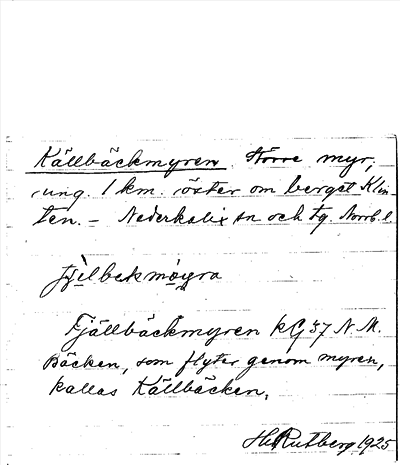 Källbäckmyren. Större myr,
ung. 1 km. öster om berget Klin-
ten. - Nederkalix sn och tg. Norrb. l.
fjìlbekmöyra
Fjällbäckmyren kG 37 N.M.
Bäcken, som flyter genom myren,
kallas Källbäcken.
H. Rutberg 1925